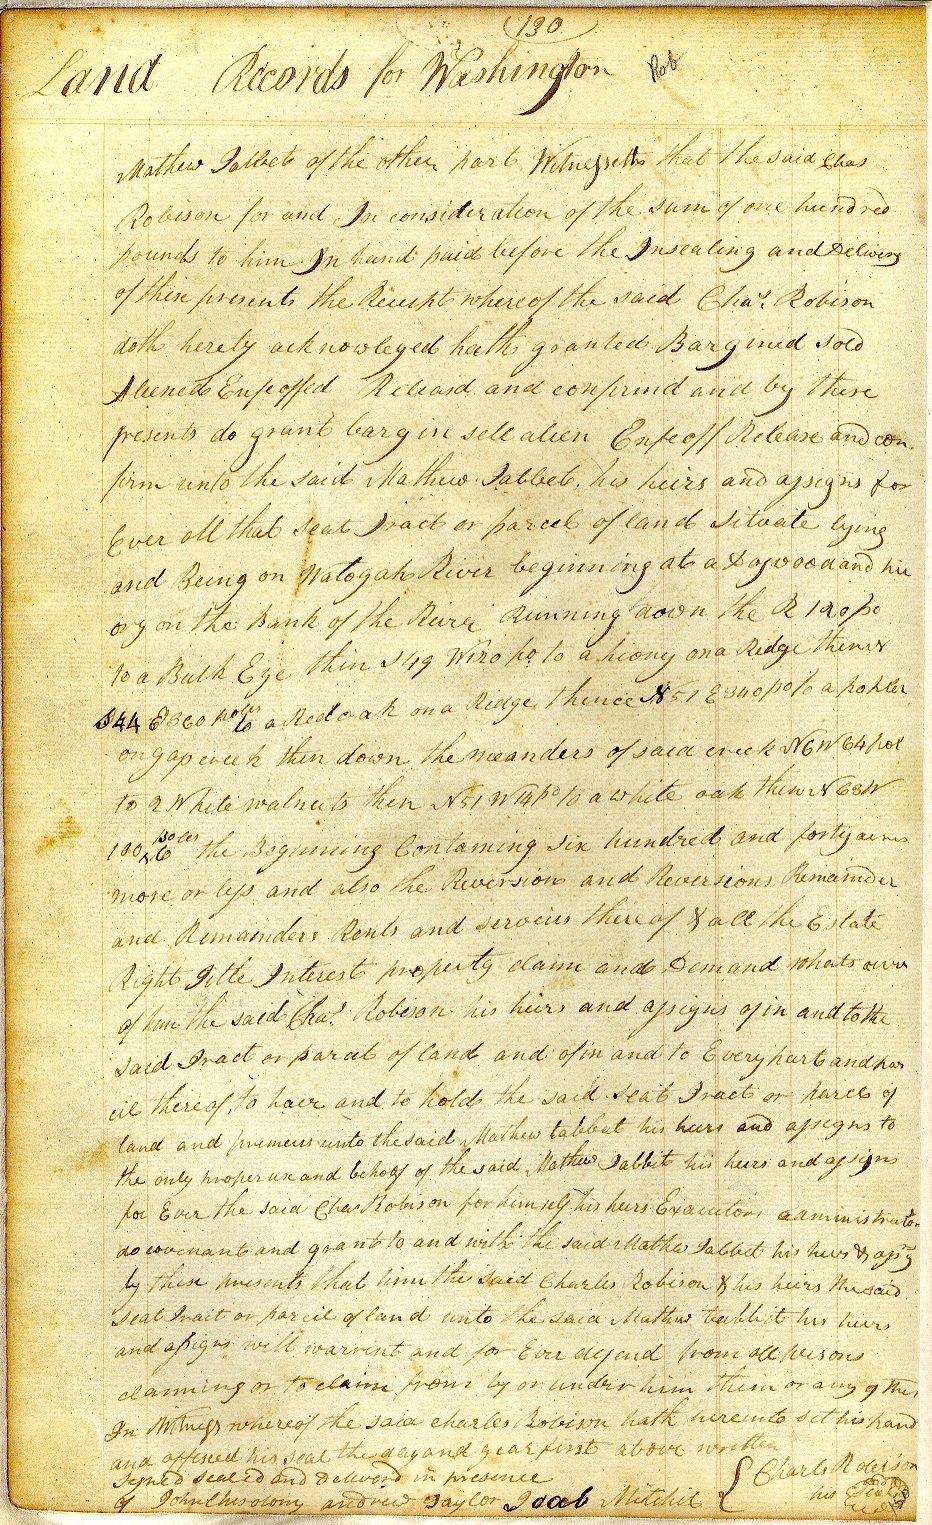 130
Land Records for Washington Rob
Mathew Talbet of the other part Witnesseth that the said Chas
Robison for and In consideration of the sum of one hundred
pounds to him In hand paid before the Insealing and Delivery
of these presents the Receipt whereof the said Chas. Robison
doth herely acknowleged hath granted Bargined sold
Aliened Enfeoffed Releasd and confirmd and by these
presents do grant bargin sell alien Enfeoff Release and con
firm unto the said Mathew Talbet his heirs and assigns for
Ever all that seat Tract or parcel of land situate lying
and Being on Watogah River beginning at a Dogwood and hic
ory on the Bank of the River Running down the R 120 po
to a Buck Eye then S49 W120 po to a hicory on a Ridge thence
S44 E360 poles to a Red oak on a Ridge thence N51 E340 po to a popler
on gap creek then down the meanders of said creek N6W 64 pol
to 2 White walnuts then N51 W14 po to a white oak then N68W
100 poles to the Beginning Containing six hundred and forty acres
more or less and also the Reversion and Reversions Remainder
and Remainders Rents and services thereof & all the Estate
Right Title Interest property claim and Demand whatsoever
of him the said Chas. Robison his heirs and assigns of in and to the
said Tract or parcel of land and of in and to Every part and par
cel thereof to have and to hold the said seat Tract or parcel of
land and premeses unto the said Mathew tabbat his heirs and assigns to
the only proper use and behoof of the said Mathew Tabbit his heirs and assigns
for Ever the said Chas Robison for himself his heirs Executors administrator
do covenant and grant to and with the said Mathew Tabbet his heirs & assg
by these presents that him the said Charles Robison & his heirs the said
seat Tract or parcil of land unto the said Mathew tabbit his heirs
and assigns will warrent and for Ever defend from all persons
claiming or to claim from by or under him them or any of them
In Witness whereof the said Charles Robison hath hereunto set his hand
and affixed his seal the day and year first above written
Signed sealed and Deliverd in presence { Charls Roberson
of John Chisolom andrew Taylor Joab Mitchil his